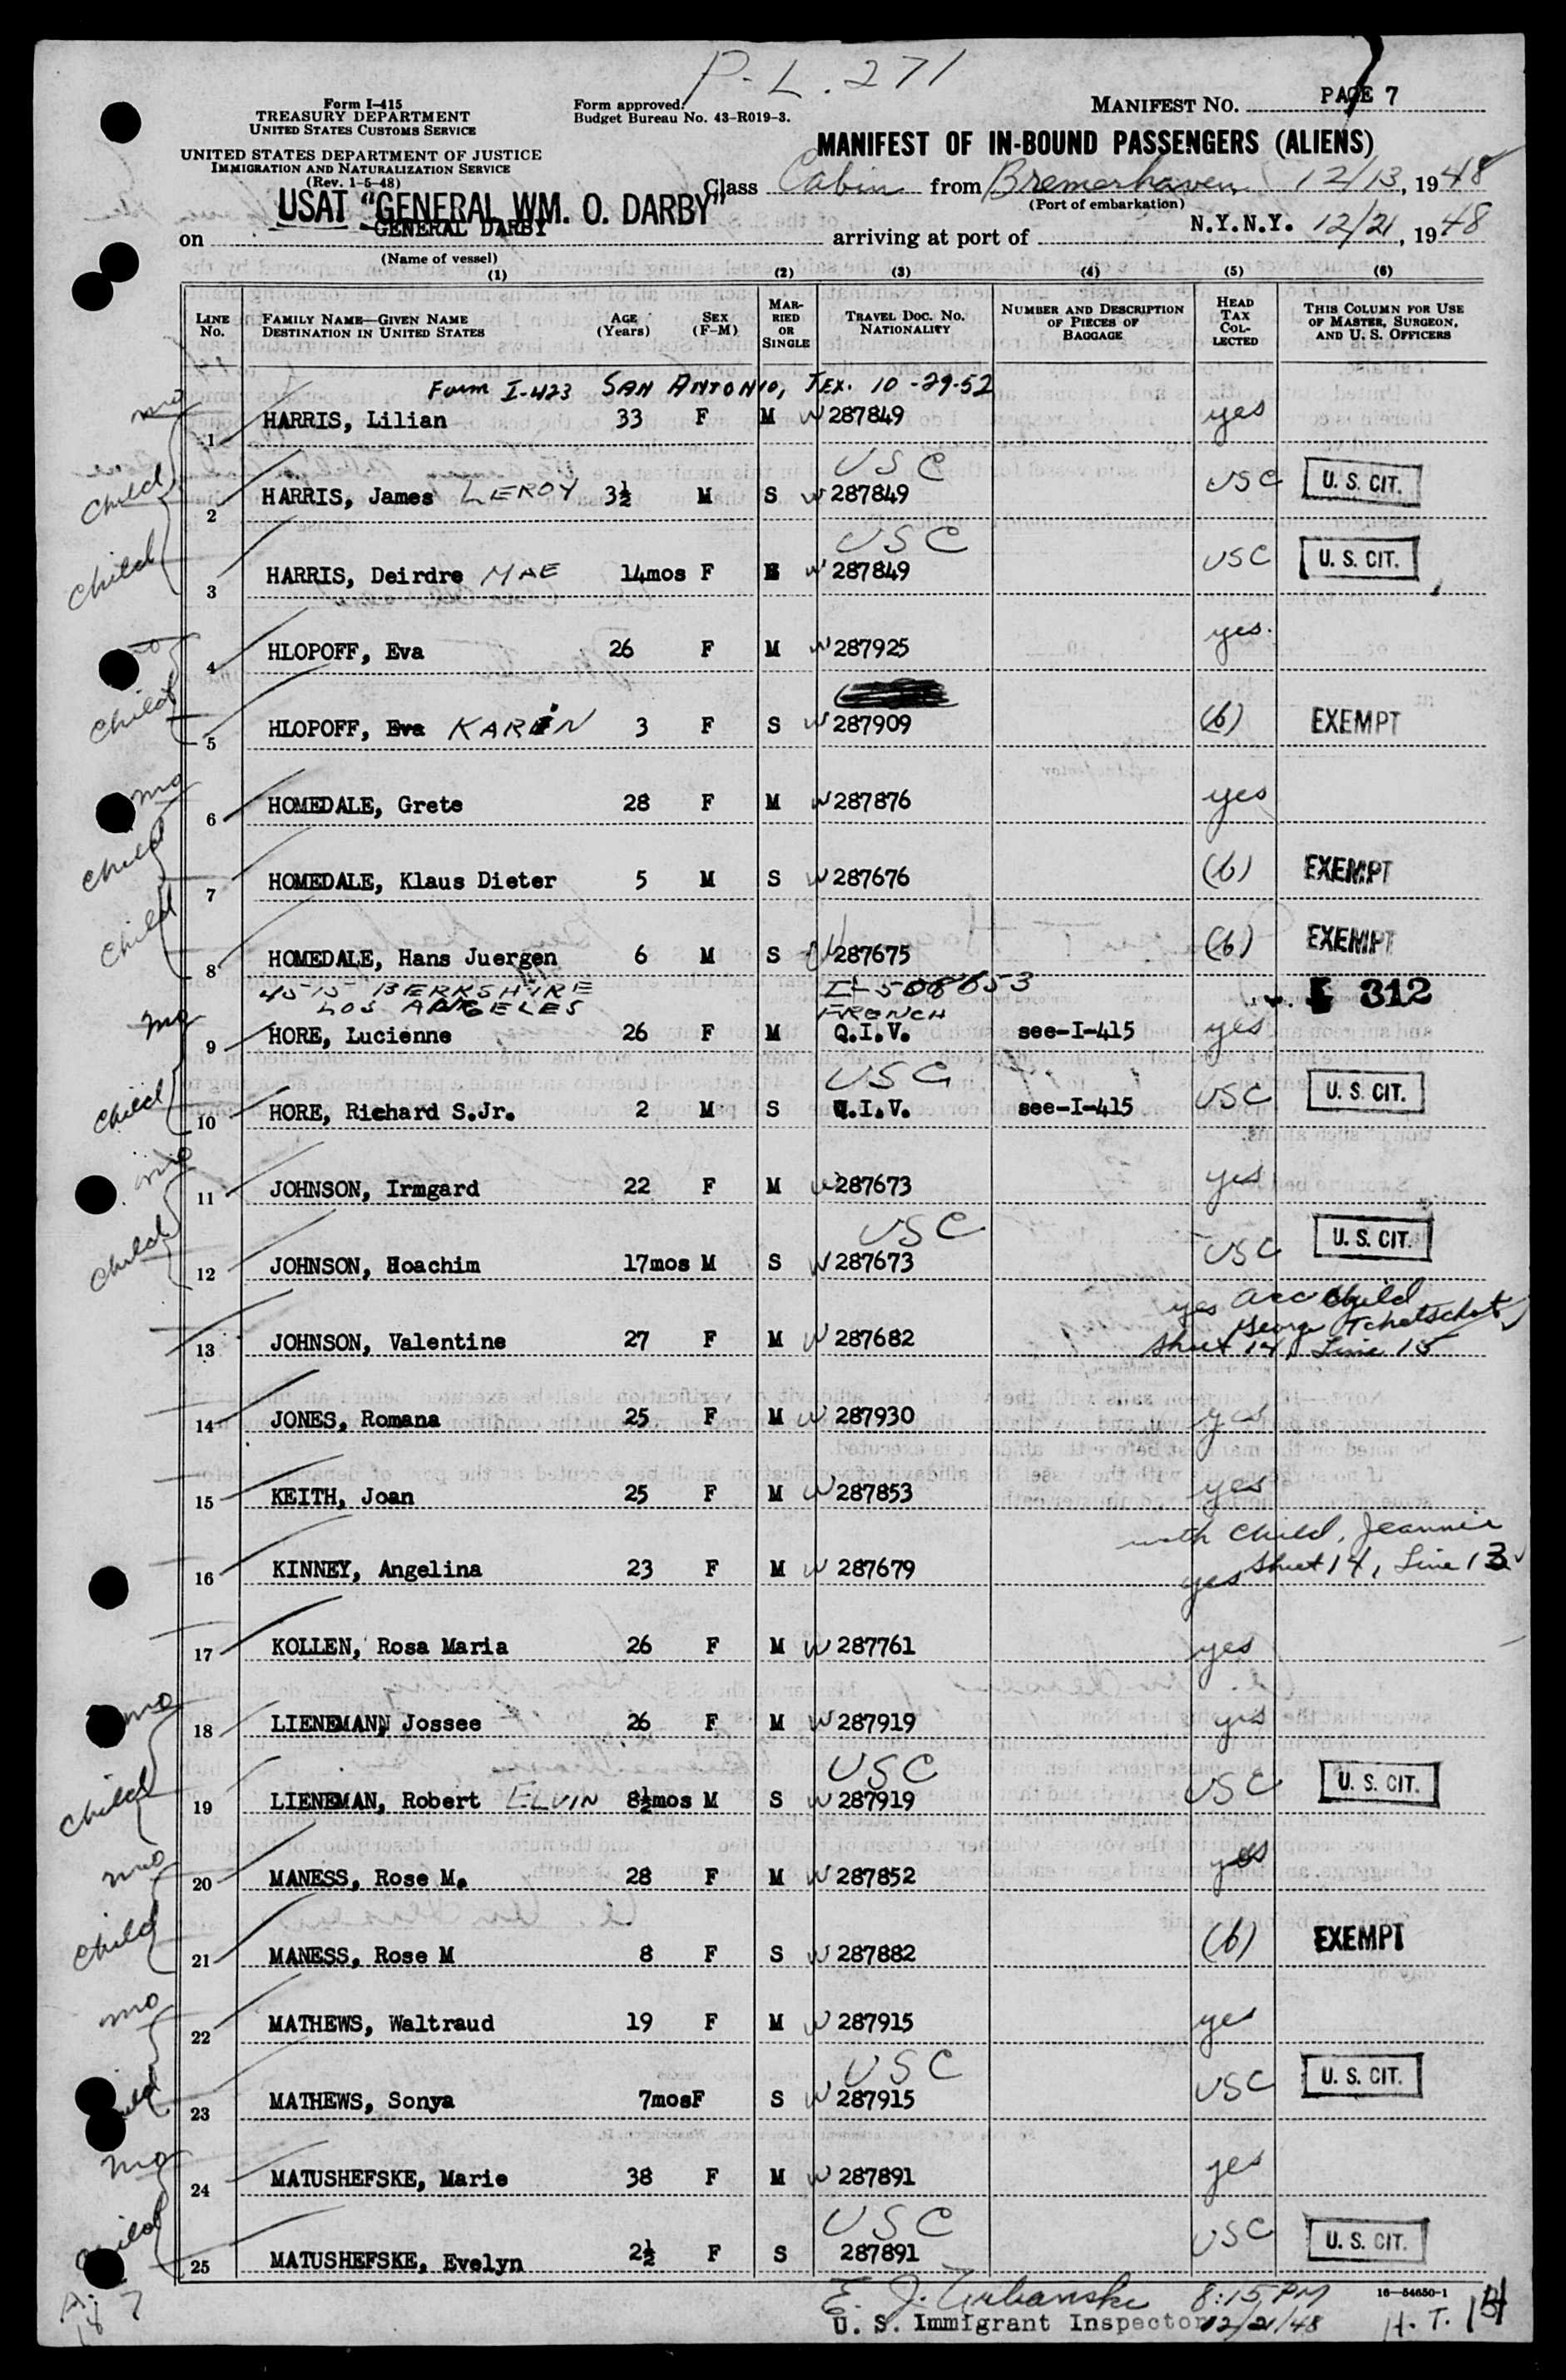 P.L. 271
Form I-415
TREASURY DEPARTMENT
UNITED STATES CUSTOMS SERVICE
Form approved.
Budget Bureau No. 43-R019-3.
MANIFEST NO. PAGE 7
UNITED STATES DEPARTMENT OF JUSTICE
IMMIGRATION AND NATURALIZATION SERVICE
(Rev. 1-5-48)
MANIFEST OF IN-BOUND PASSENGERS (ALIENS)
Class Cabin from Bremerhaven, 12/13, 1948
(Port of embarkation)
USAT "GENERAL WM. O. DARBY"
GENERAL DARBY
on arriving at port of N.Y.N.Y. 12/21, 1948
(Name of vessel)
(1) (2) (3) (4) (5) (6)
LINE No. FAMILY NAME—GIVEN NAME DESTINATION IN UNITED STATES AGE (Years) SEX (F-M) MARRIED OR SINGLE TRAVEL DOC. NO. NATIONALITY NUMBER AND DESCRIPTION OF PIECES OF BAGGAGE HEAD TAX COLLECTED THIS COLUMN FOR USE OF MASTER, SURGEON, AND U. S. OFFICERS
Form I-423 SAN ANTONIO, TEX. 10-29-52
mo 1 HARRIS, Lilian 33 F M W 287849 yes
USC
child 2 HARRIS, James LEROY 3½ M S W 287849 USC U. S. CIT.
USC
child 3 HARRIS, Deirdre MAE 14mos F W 287849 USC U. S. CIT.
4 HLOPOFF, Eva 26 F M W 287925 yes.
child 5 HLOPOFF, Eva KARIN 3 F S W 287909 (b) EXEMPT
mo 6 HOMEDALE, Grete 28 F M W 287876 yes
child 7 HOMEDALE, Klaus Dieter 5 M S W 287676 (b) EXEMPT
child 8 HOMEDALE, Hans Juergen 6 M S W 287675 (b) EXEMPT
4515 BERKSHIRE
LOS ANGELES
I-508653
FRENCH
312
mo 9 HORE, Lucienne 26 F M Q.I.V. see-I-415 yes
USC
child 10 HORE, Richard S.Jr. 2 M S Q.I.V. see-I-415 USC U. S. CIT.
mo 11 JOHNSON, Irmgard 22 F M W 287673 yes
USC
child 12 JOHNSON, Hoachim 17mos M S W 287673 USC U. S. CIT.
yes acc child
George Tchetschot
13 JOHNSON, Valentine 27 F M W 287682 Sheet 14, Line 15
14 JONES, Romana 25 F M W 287930 yes
15 KEITH, Joan 25 F M W 287853 yes
with child, Jeannie
16 KINNEY, Angelina 23 F M W 287679 yes Sheet 14, Line 13
17 KOLLEN, Rosa Maria 26 F M W 287761 yes
mo 18 LIENEMANN, Jossee 26 F M W 287919 yes
USC
child 19 LIENEMAN, Robert ELVIN 8½mos M S W 287919 USC U. S. CIT.
mo 20 MANESS, Rose M. 28 F M W 287852 yes
child 21 MANESS, Rose M 8 F S W 287882 (b) EXEMPT
mo 22 MATHEWS, Waltraud 19 F M W 287915 yes
USC
child 23 MATHEWS, Sonya 7mos F S W 287915 USC U. S. CIT.
mo 24 MATUSHEFSKE, Marie 38 F M W 287891 yes
USC
child 25 MATUSHEFSKE, Evelyn 2½ F S 287891 USC U. S. CIT.
E. J. Urbanski 8:15 PM 16—54650-1
U. S. Immigrant Inspector 12/21/48 H.T. 14